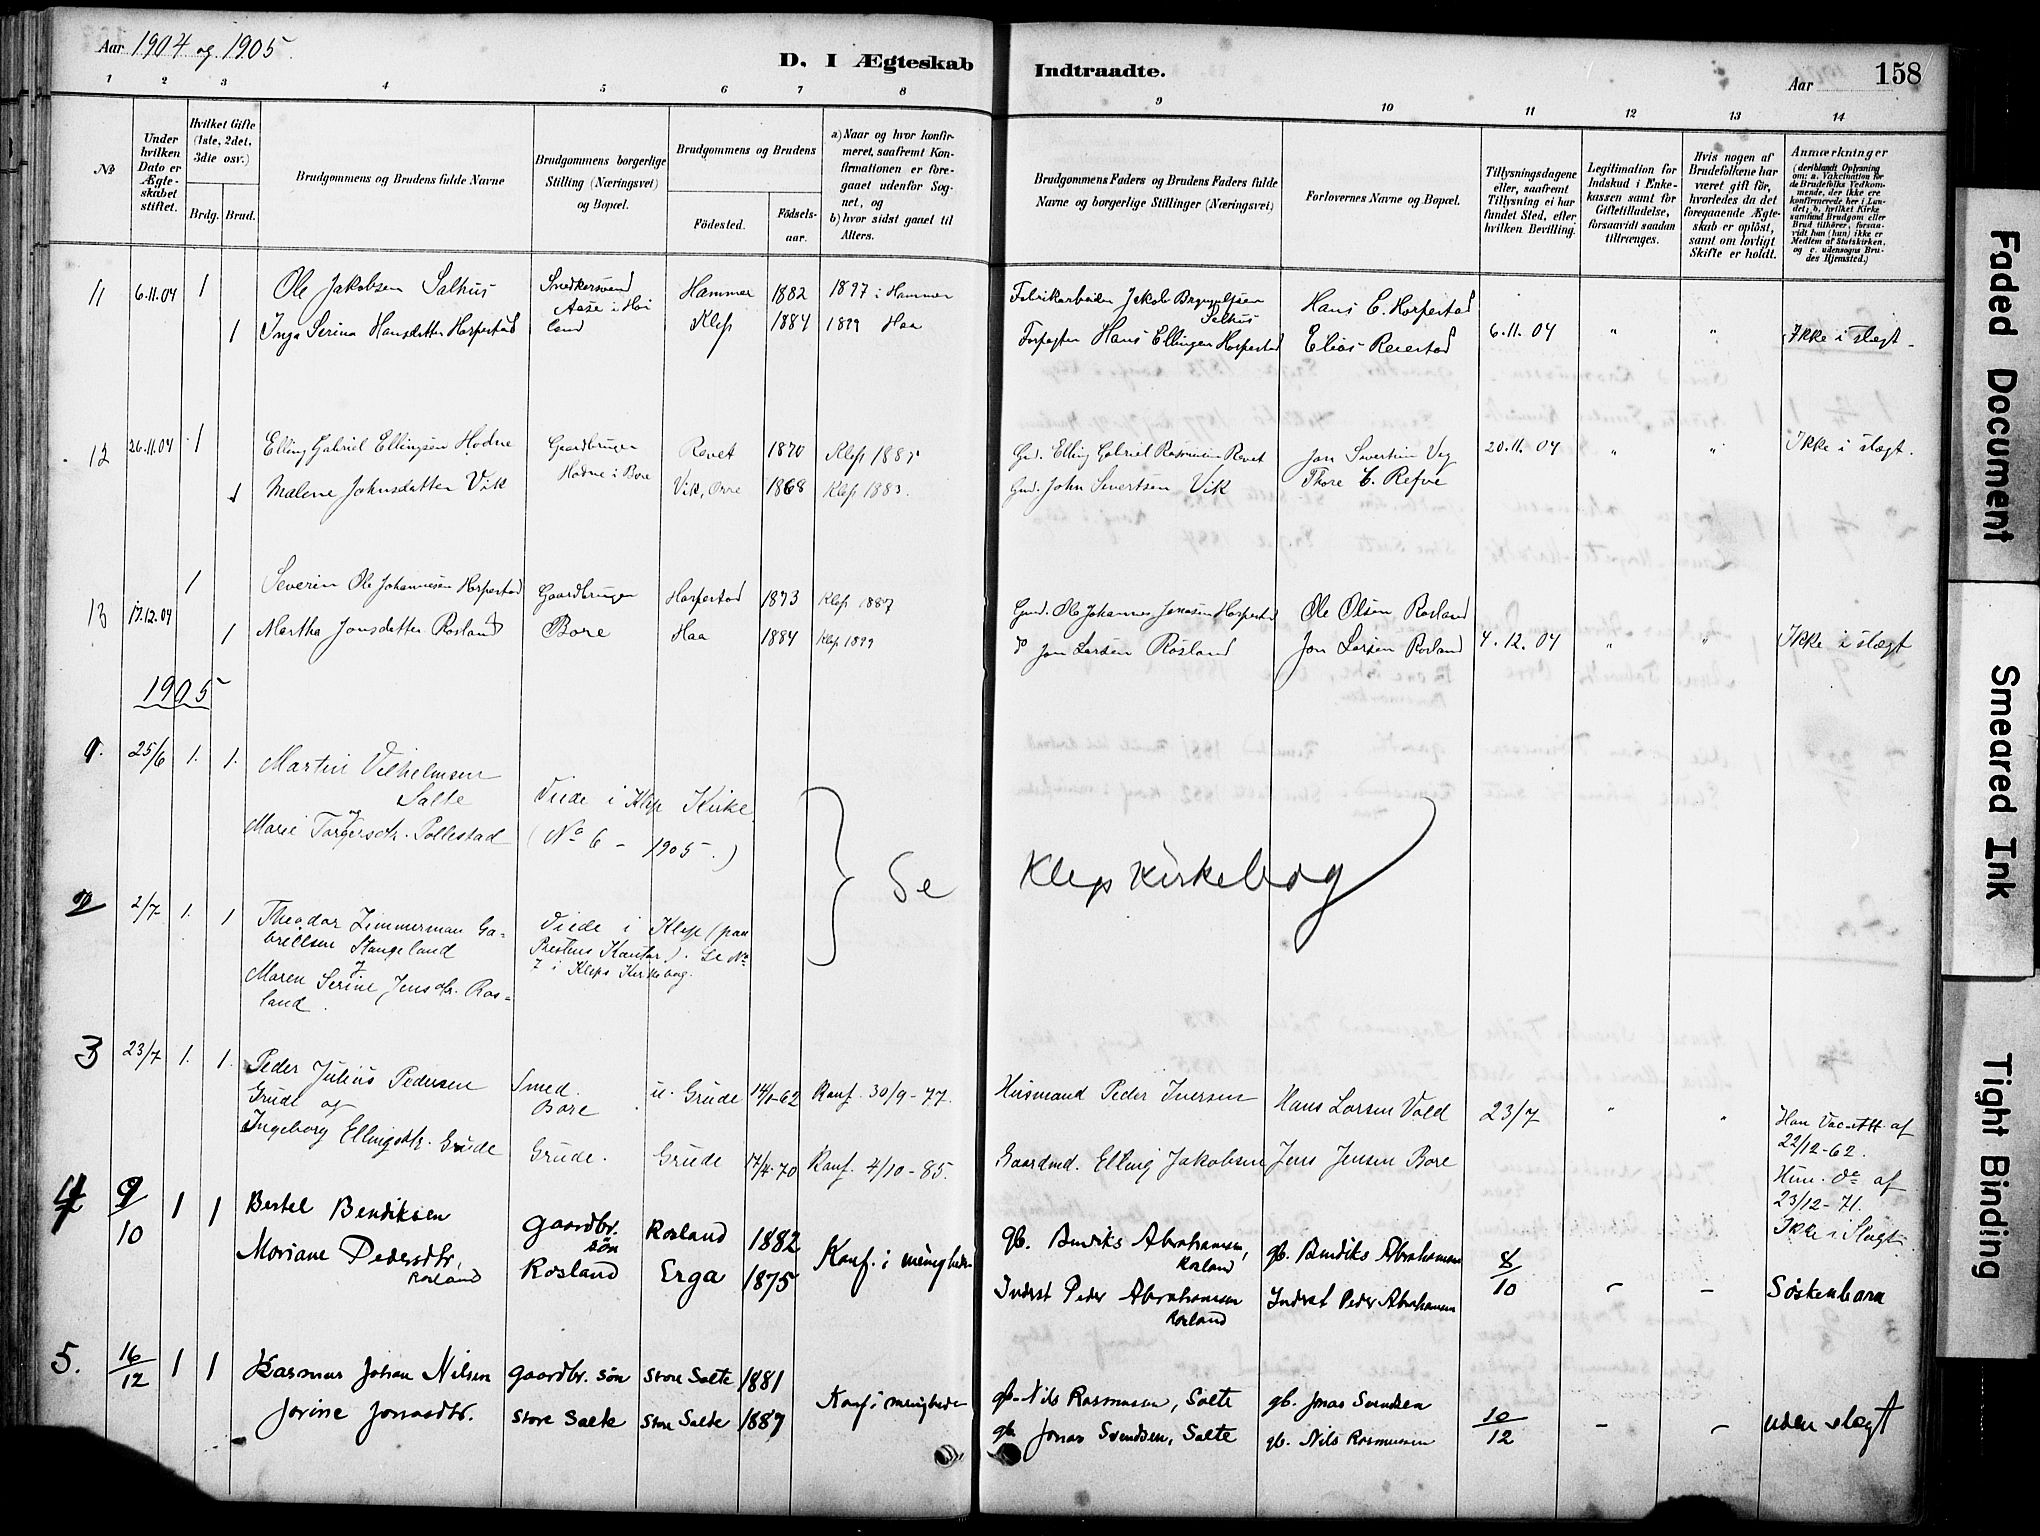 Aar 1904 og 1905.
D. I Ægteskab Indtraadte.
Aar
158
1 2 3 4 5 6 7 8 9 10 11 12 13 14
No
Under hvilken Dato er Ægteskabet stiftet.
Hvilket Gifte (1ste, 2det, 3die osv.)
Brdg. Brud.
Brudgommens og Brudens fulde Navne
Brudgommens borgerlige Stilling (Næringsvei) og Bopæl.
Brudgommens og Brudens
Fødested.
Fødsels-aar.
a) Naar og hvor konfirmeret, saafremt Konfirmationen er foregaaet udenfor Sognet, og
b) hvor sidst gaaet til Alters.
Brudgommens Faders og Brudens Faders fulde Navne og borgerlige Stillinger (Næringsvei)
Forlovernes Navne og Bopæl.
Tillysningsdagene eller, saafremt Tillysning ei har fundet Sted, efter hvilken Bevilling.
Legitimation for Indskud i Enkekassen samt for Giftetilladelse, forsaavidt saadan tiltrænges.
Hvis nogen af Brudefolkene har været gift før, hvorledes da det foregaaende Ægteskab er opløst, samt om lovligt Skifte er holdt.
Anmærkninger (deriblandt Oplysning om: a. Vakcination for de Brudefolks Vedkommende, der ikke ere konfirmerede her i Landet; b. hvilket Kirkesamfund Brudgom eller Brud tilhører, forsaavidt han (hun) ikke er Medlem af Statskirken, og c. udensogns Brudes Hjemsted.)
11 6.11.04 1 Ole Jakobsen Salhus Snedkersvend Hammer 1882 1897 i Hammer Fabrikarbeider Jakob Brynjulfsen Salhus Hans E. Horpestad
Aase i Høiland
1 Inga Serina Hansdatter Horpestad Klep 1884 1899 Haa Forpagter Hans Ellingsen Horpestad Elias Reiestad 6.11.04 " " Ikke i slegt
12 26.11.04 1 Elling Gabriel Ellingsen Hodne Gaardbruger Revet 1870 Klep 1885 Grd. Elling Gabriel Rasmusen Revet Jon Sivertsen Vig 20.11.04 " " Ikke i slegt.
Hodne i Bore
1 Malene Johnsdatter Vik Vik, Orre 1868 Klep 1883. Gmd. John Sivertsen Vik Thore E. Refve
13 17.12.04 1 Severin Ole Johannesen Horpestad Gaardbruger Horpestad 1873 Klep 1887 Gmd. Ole Johannes Jonasen Horpestad Ole Olsen Rosland
1 Martha Jonsdatter Rosland Bore Haa 1884 Klep 1899 do Jon Larsen Rosland Jon Larsen Rosland 4.12.04 " " Ikke i slegt
1905
1. 25/6 1. 1. Martin Vilhelmsen Salte
og
Marie Torgersdtr. Pollestad
Viede i Klep Kirke
(No 6 - 1905.)
Se Klep Kirkebog
2 2/7 1. 1 Theodor Zimmerman Gabrielsen Stangeland
Maren Serine Jensdtr. Rosland.
Viede i Klep (paa
Prestens Kontor). Se No
7 i Kleps Kirkebog.
3 23/7 1. 1. Peder Julius Pedersen Smed. u. Grude 14/1-62 Konf. 30/9-77. Husmand Peder Iversen Hans Larsen Vold 23/7 " " Han Vac. Att. af
Grude og Bore 22/12-62.
Ingeborg Ellingsdtr. Grude Grude. Grude 14/4-70 Konf. 4/10-85. Gaardmd. Elling Jakobsen Jens Jensen Bore Hun. do af
23/12-71.
Ikke i Slegt
4 9/10 1 1 Bertel Bendiksen gaardbr. søn Rosland 1882 Konf. i menigheden gb. Bendiks Abrahamsen, Rosland gb. Bendiks Abrahamsen 8/10 - -
Mariane Pedersdtr. Rosland Rosland Erga 1875 Inderst Peder Abrahamsen Rosland Inderst Peder Abrahamsen Søskenbarn
5. 16/12 1 1 Rasmus Johan Nilsen gaardbr. søn Store Salte 1881 Konf i menigheden gb. Nils Rasmussen, Salte gb. Jonas Svendsen
Jorine Jonasdtr. Store Salte Store Salte 1887 gb Jonas Svendsen, Salte gb. Nils Rasmussen 10/12 - - uden slegt
Faded Document
Smeared Ink
Tight Binding